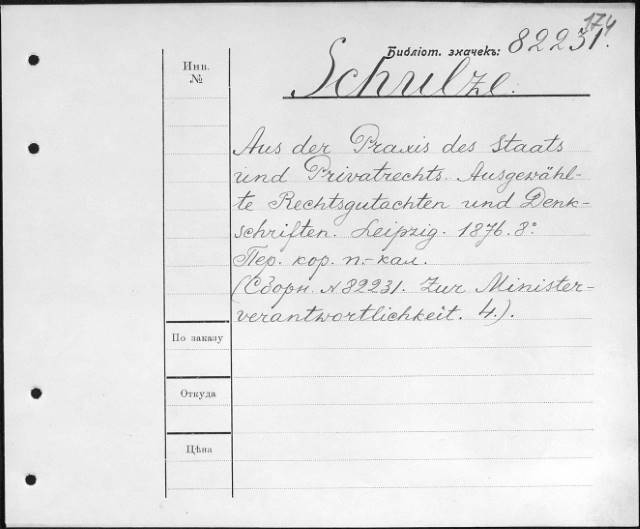 174
Библіот. значекъ: 82231.
Инв.
№
Schulze.
Aus der Praxis des Staats
und Privatrechts. Ausgewähl-
te Rechtsgutachten und Denk-
schriften. Leipzig. 1876. 8°
Пер. кор. п.-кал.
(Сборн. №82231. Zur Minister-
verantwortlichkeit. 4.).
По заказу
Откуда
Цѣна